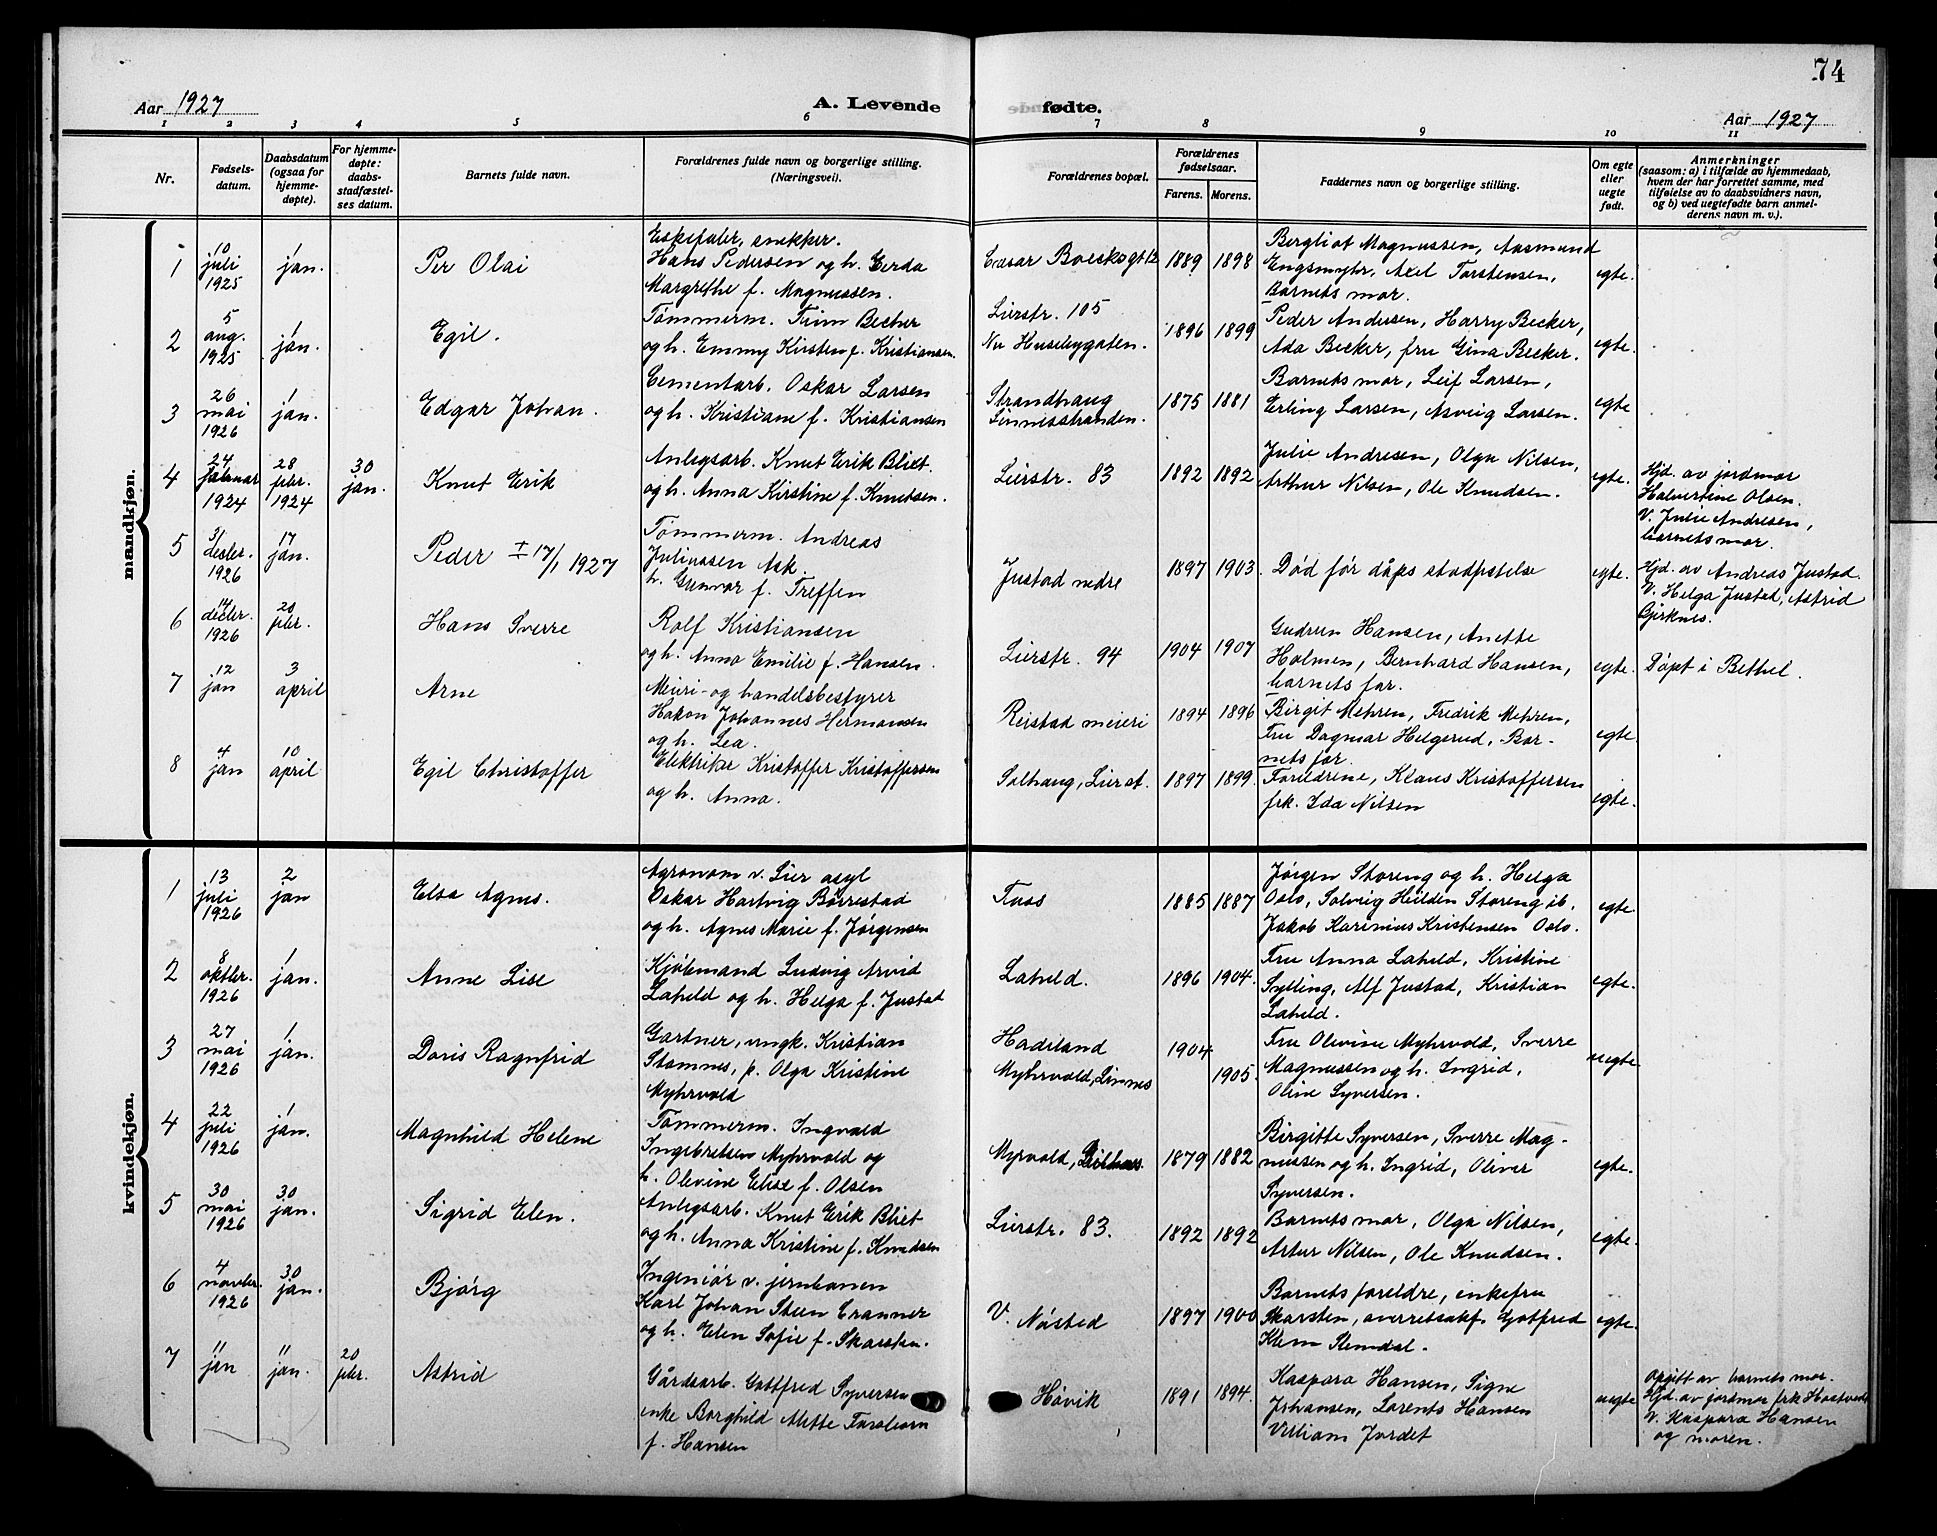 74
Aar 1927
A. Levende fødte.
Aar 1927
1 2 3 4 5 6 7 8 9 10 11
Nr.
Fødsels-
datum.
Daabsdatum
(ogsaa for
hjemme-
døpte).
For hjemme-
døpte:
daabs-
stadfæstel-
ses datum.
Barnets fulde navn.
Forældrenes fulde navn og borgerlige stilling.
(Næringsvei).
Forældrenes bopæl.
Forældrenes
fødselsaar.
Farens. Morens.
Faddernes navn og borgerlige stilling.
Om egte
eller
uegte
født.
Anmerkninger
(saasom: a) i tilfælde av hjemmedaab,
hvem der har forrettet samme, med
tilføielse av to daabsvidners navn,
og b) ved uegtefødte barn anmel-
derens navn m. v.).
mandkjøn.
1
10
juli
1925
1
jan.
Per Olai
snekker.
Hans Pedersen og h. Gerda
Margrethe f. Magnussen.
Cæsar Boeskogt 12
1889 1898
Bergliot Magnussen, Aasmund
Engsmyhr, Axel Torstensen,
Barnets mor.
egte.
2
5
aug.
1925
1
jan.
Egil.
Tømmerm. Trim Becker
og h. Emmy Kirsten f. Kristiansen.
Lierstr. 105
Nu Husebygaten.
1896 1899
Peder Andersen, Harry Becker,
Ada Becker, fru Gina Becker.
egte.
3
26
mai
1926
1
jan.
Edgar Johan.
Cementarb. Oskar Larsen
og h. Kristiane f. Kristiansen
Strandhaug
Linnesstranden.
1875 1881
Barnets mor, Leif Larsen,
Erling Larsen, Asveig Larsen.
egte
4
24
februar
1924
28
febr.
1924
30
jan.
Knut Erik
Anlegsarb. Knut Erik Bliet.
og h. Anna Kirstine f. Knutsen.
Lierstr. 83
1892 1892
Julie Andresen, Olga Nilsen,
Arthur Nilsen, Ole Knudsen.
egte.
Hjd. av jordmor
Halvordine Olsen.
V. Julie Andresen,
barnets mor.
5
3/
desbr.
1926
17
jan.
Peder † 17/1 1927
Tømmerm. Andreas
Juliussen Ask.
h. Gunvor f. Treffen
Justad nedre
1897 1903.
Død før dåps stadfestelse
egte.
Hjd. av Andreas Justad.
V. Helga Justad, Astrid
Gjerknes.
6
14
desbr.
1926
20
febr.
Hans Sverre
Rolf Kristiansen
og h. Anna Emilie f. Hansen.
Lierstr. 94
1904 1907
Gudrun Hansen, Anette
Holmen, Bernhard Hansen,
barnets far.
egte.
Døpt i Bethel.
7
12
jan
3
april
Arne
Meieri- og handelsbestyrer
Hakon Johannes Hermansen
og h. Lea.
Reistad meieri
1894 1896
Birgit Mehren, Fredrik Mehren,
Fru Dagmar Helgerud, Bar-
nets far.
egte.
8
4
jan
10
april
Egil Christoffer
Elektriker Kristoffer Kristoffersen
og h. Anna.
Solhaug, Lierst.
1897 1899.
Foreldrene, Klaus Kristoffersen
frk. Ida Nilsen
egte.
kvindekjøn.
1
13
juli
1926
2
jan
Elsa Agnes.
Agronom v. Lier asyl
Oskar Hartvig Børrestad
og h. Agnes Marie f. Jørgensen
Foss
1885 1887
Jørgen Storeng og h. Helga
Oslo, Solveig Heilden Storeng ib.
Jakob Karenius Kristensen Oslo.
egte.
2
8
oktbr.
1926
1
jan.
Anne Lise
Kjøbmand Ludvig Arvid
Laheld og h. Helga f. Justad
Laheld.
1896 1904.
Fru Anna Laheld, Kristine
Sylling, Alf Justad, Kristian
Laheld.
egte.
3
27
mai
1926
1
jan.
Doris Ragnfrid
Gartner, ungk. Kristian
Stamnes, p. Olga Kristine
Myhrvold
Hadeland
Myhrvold, Linnes
1904
1905.
Fru Olivine Myhrvold, Sverre
Magnussen og h. Ingrid,
Oline Syversen.
uegte
4
22
juli
1926
1
jan.
Magnhild Helene
Tømmerm. Ingvald
Ingebretsen Myhrvold og
h. Olivine Elise f. Olsen
Myrvold,
1879 1882
Birgitte Syversen, Sverre Mag-
nussen og h. Ingrid, Oliver
Syversen.
egte.
5
30
mai
1926
30
jan.
Sigrid Elen.
Anlegsarb. Knut Erik Bliet
og h. Anna Kristine f. Knudsen
Lierstr. 83.
1892 1892
Barnets mor, Olga Nilsen,
Artur Nilsen, Ole Knudsen.
egte.
6
4
novbr.
1926
30
jan.
Bjørg
Ingeniør v. jernbanen
Karl Johan Steen Cranner
og h. Elen Sofie f. Skarsten.
V. Nøsted
1897 1900
Barnets foreldre, enkefru
Skarsten, overretssakf. Gotfred
Klem Stemdal.
egte.
7
11
jan
11
jan.
20
febr.
Astrid
Gårdsarb. Gottfred Syversen
enke Borghild Mette
f. Hansen
Høvik
1891 1894.
Kaspara Hansen, Signe
Johansen, Lorents Hansen
Villiam Jordet
uegte
Opgitt av barnets mor.
Hjd. av jordmor frk
V. Kaspara Hansen
og moren.